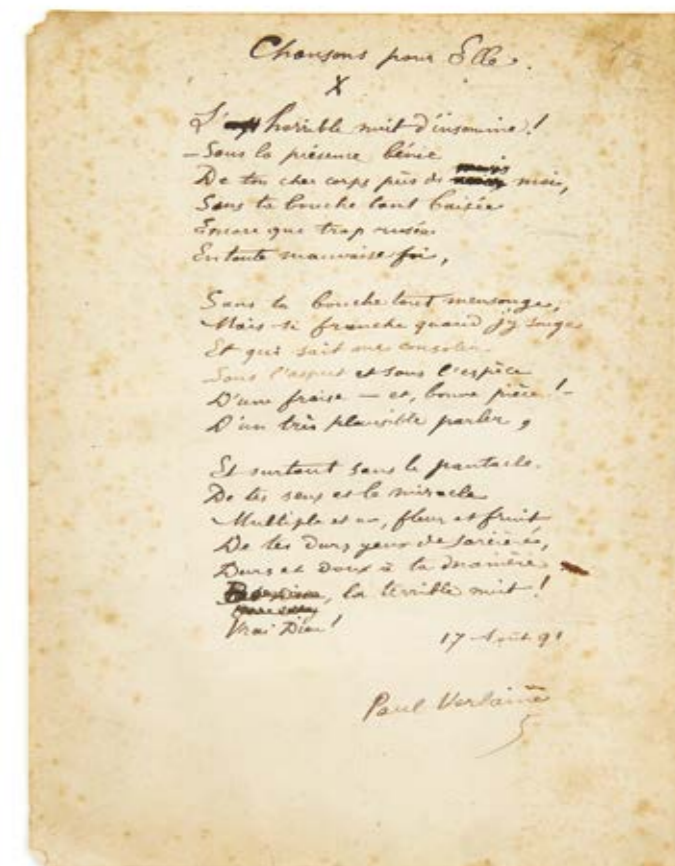 Chansons pour Elle.
X
L'horrible nuit d'insomnie!
– Sans la présence bénie
De ton cher corps près de moi,
Sans ta bouche tant baisée
Encore que trop rusée
En toute mauvaise foi,
Sans ta bouche tout mensonge,
Mais si franche quand j'y songe
Et qui sait me consoler
Sous l'aspect et sous l'espèce
D'une fraise — et, bonne pièce! –
D'un très plausible parler,
Et surtout sans le pantacle
De tes sens et le miracle
Multiple et un, fleur et fruit
De tes durs yeux de sorcière,
Durs et doux à ta manière
la terrible nuit!
Vrai Dieu!
17 Août 91
Paul Verlaine